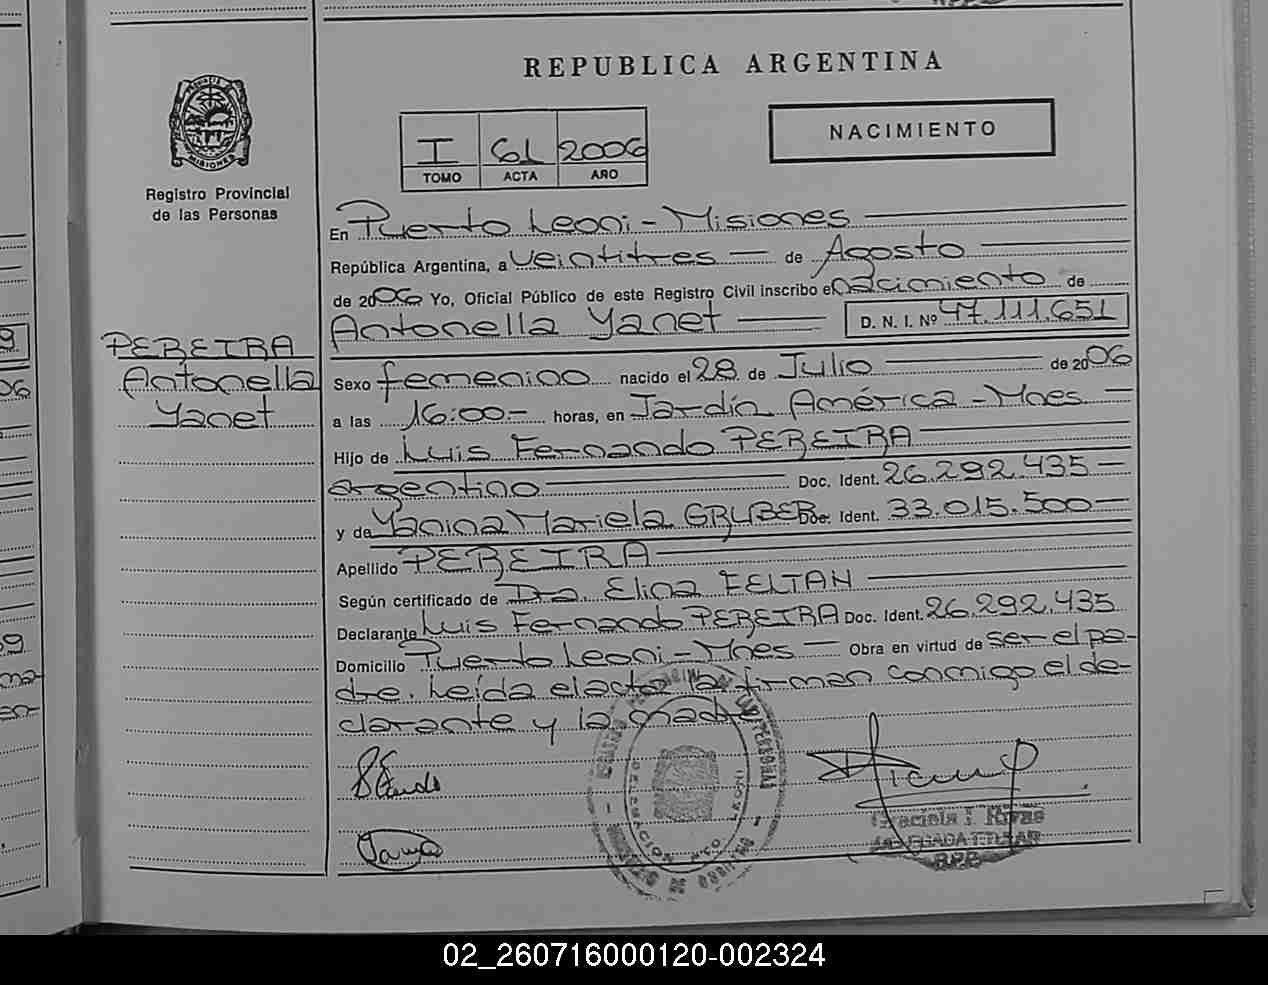 REPUBLICA ARGENTINA
NACIMIENTO
I 61 2006
TOMO ACTA AÑO
MISIONES
Registro Provincial
de las Personas
En Puerto Leoni - Misiones
República Argentina, a veintitres de Agosto
de 2006 Yo, Oficial Público de este Registro Civil inscribo el nacimiento de
Antonella Yanet D. N. I. Nº 47.111.651
PEREIRA
Antonella
Yanet
Sexo femenino nacido el 28 de Julio de 2006
a las 16:00 - horas, en Jardín América - Mnes
Hijo de Luis Fernando PEREIRA
argentino Doc. Ident. 26.292.435
y de Yanina Mariela GRUBER Doc. Ident. 33.015.500
Apellido PEREIRA
Según certificado de Dra. Elina FELTAN
Declarante Luis Fernando PEREIRA Doc. Ident. 26.292.435
Domicilio Puerto Leoni - Mnes Obra en virtud de ser el pa-
dre. Leída el acta la firman conmigo el de-
clarante y la madre
DELEGACION PTO. LEONI
Graciela Rivas
DELEGADA TITULAR
R.P.P.
02_260716000120-002324